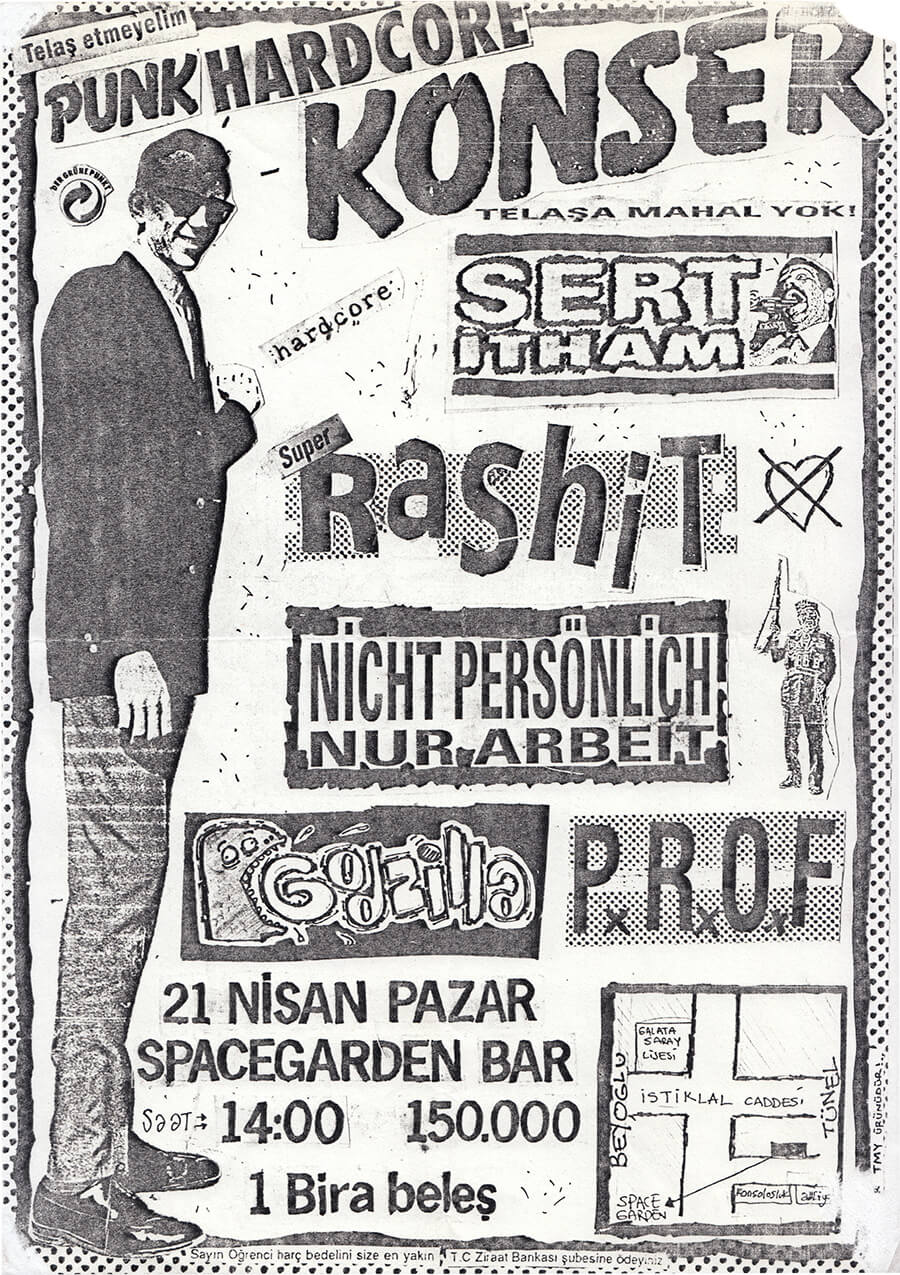 Telaş etmeyelim
PUNK HARDCORE
KONSER
DER GRÜNE PUNKT
TELAŞA MAHAL YOK!
SERT
İTHAM
hardcore
Super
RaShiT
NİCHT PERSÖNLİCH
NUR ARBEİT
Godzilla
P.R.O.F
21 NİSAN PAZAR
SPACEGARDEN BAR
Saat 14:00 150.000
1 Bira beleş
GALATA
SARAY
LİSESİ
BEYOĞLU
İSTİKLAL CADDESİ
TÜNEL
Konsolosluk
SPACE
GARDEN
TMY ÜRÜNÜDÜR!..
Sayın Öğrenci harç bedelini size en yakın T.C Ziraat Bankası şubesine ödeyiniz